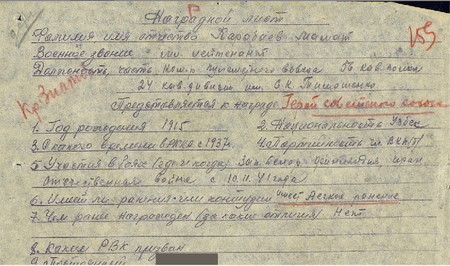 Наградной лист
Фамилия имя отчество Бабаев Мамат
Военное звание мл. лейтенант
Должность, часть Ком-р пулеметного взвода 56 кав. полка
24 кав. дивизии им. С. К. Тимошенко
Представляется к награде Герой Советского Союза
1. Год рождения 1915 2. Национальность Узбек
3. С какого времени в РККА с 1937г. 4. Партийность чл. ВКП(б)
5. Участие в боях (где и когда) Зап. Белоруссия, Иран
Отечественная война с 10.11.41 года
6. Имеет ли ранения или контузии имеет легкое ранение
7. Чем ранее награжден (за какие отличия) Нет
8. Каким РВК призван